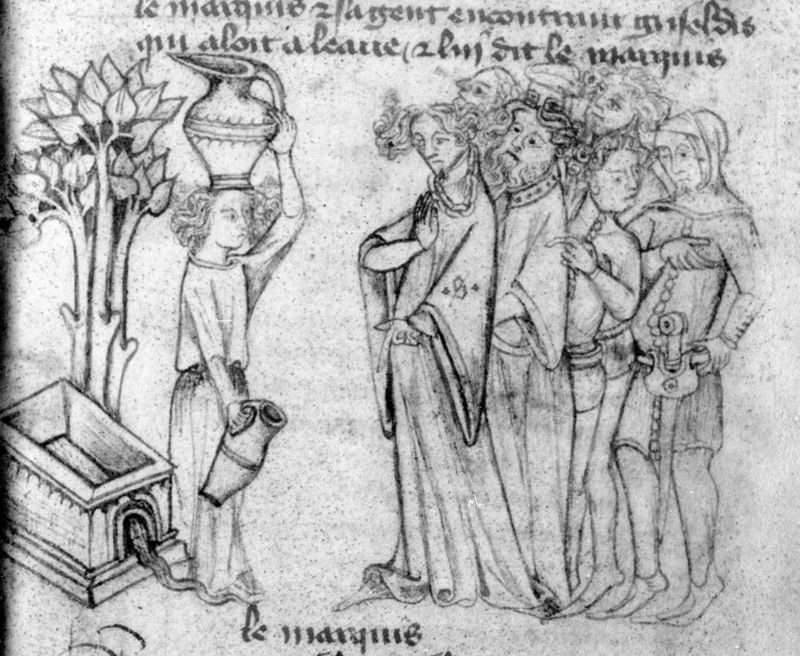 le marquis & sa gent encontrant griseldis
qui aloit a leaue / & lui dit le marquis
S
le marquis